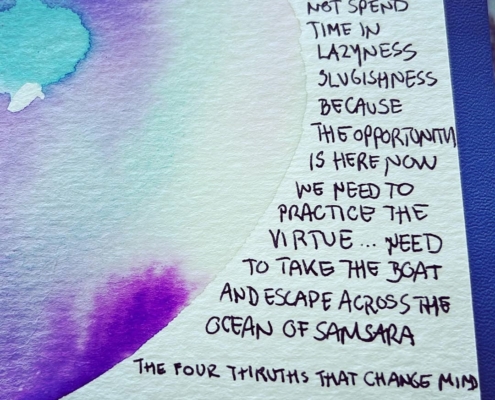 NOT SPEND
TIME IN
LAZYNESS
SLUGISHNESS
BECAUSE
THE OPPORTUNITY
IS HERE NOW
WE NEED TO
PRACTICE THE
VIRTUE... NEED
TO TAKE THE BOAT
AND ESCAPE ACROSS THE
OCEAN OF SAMSARA
THE FOUR THRUTHS THAT CHANGE MIND